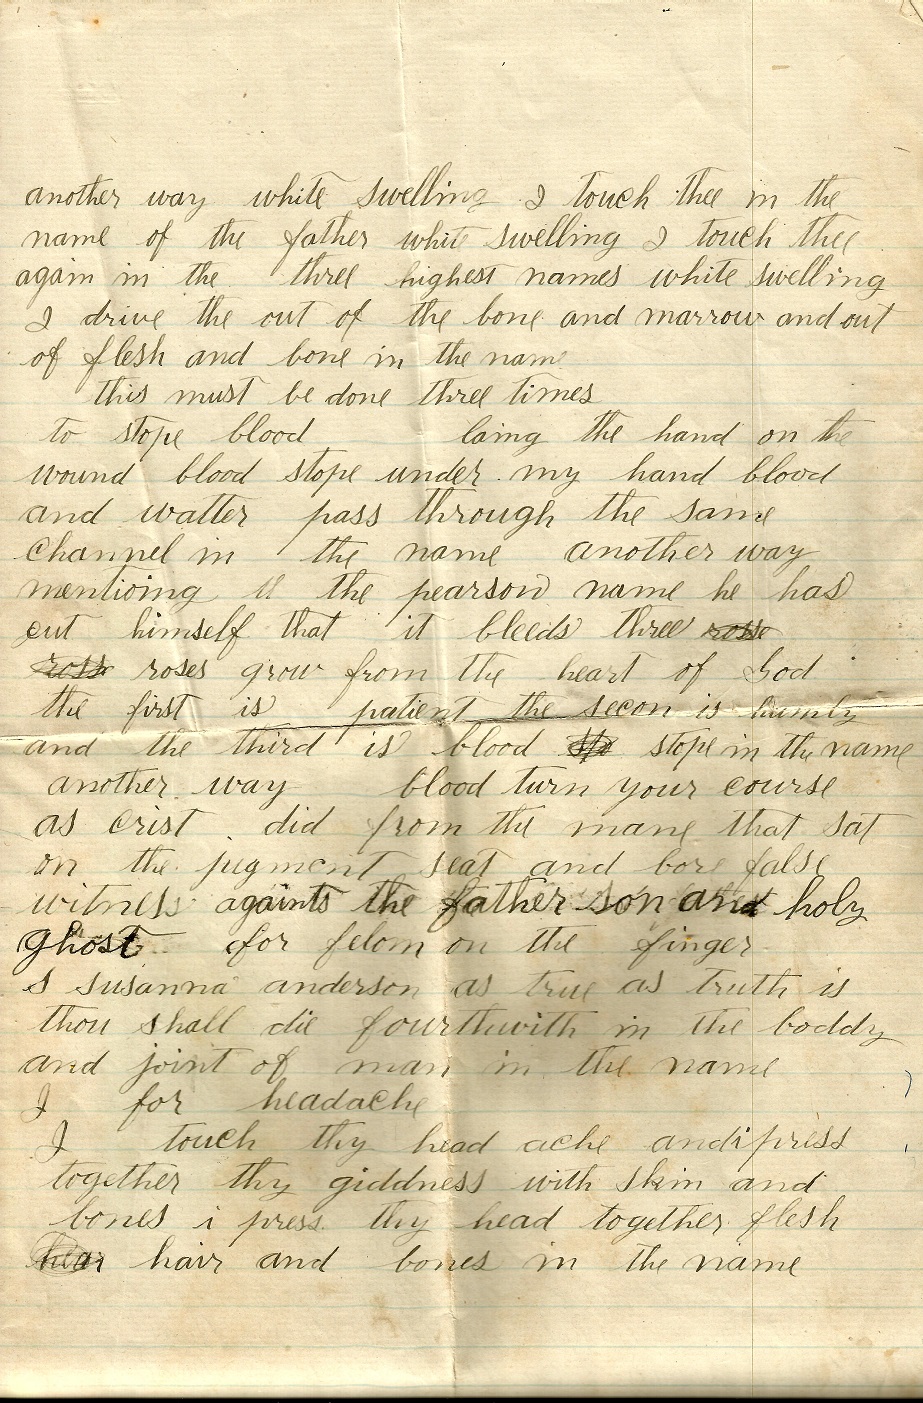 another way white swelling I touch thee in the
name of the father white swelling I touch thee
again in the three highest names white swelling
I drive the out of the bone and marrow and out
of flesh and bone in the name
this must be done three times
to stope blood laing the hand on the
wound blood stope under my hand blood
and watter pass through the same
channel in the name another way
mentioing the pearson name he has
cut himself that it bleeds three rosse
ross roses grow from the heart of God
the first is patient the secon is humbly
and the third is blood sto stope in the name
another way blood turn your course
as crist did from the mane that sat
on the jugment seat and bore false
witness againts the father son and holy
ghost for felom on the finger
I susanna anderson as true as truth is
thou shall die fourthwith in the boddy
and joint of man in the name
I for headache
I touch thy head ache and i press
together thy giddness with skin and
bones i press thy head together flesh
hear hair and bones in the name